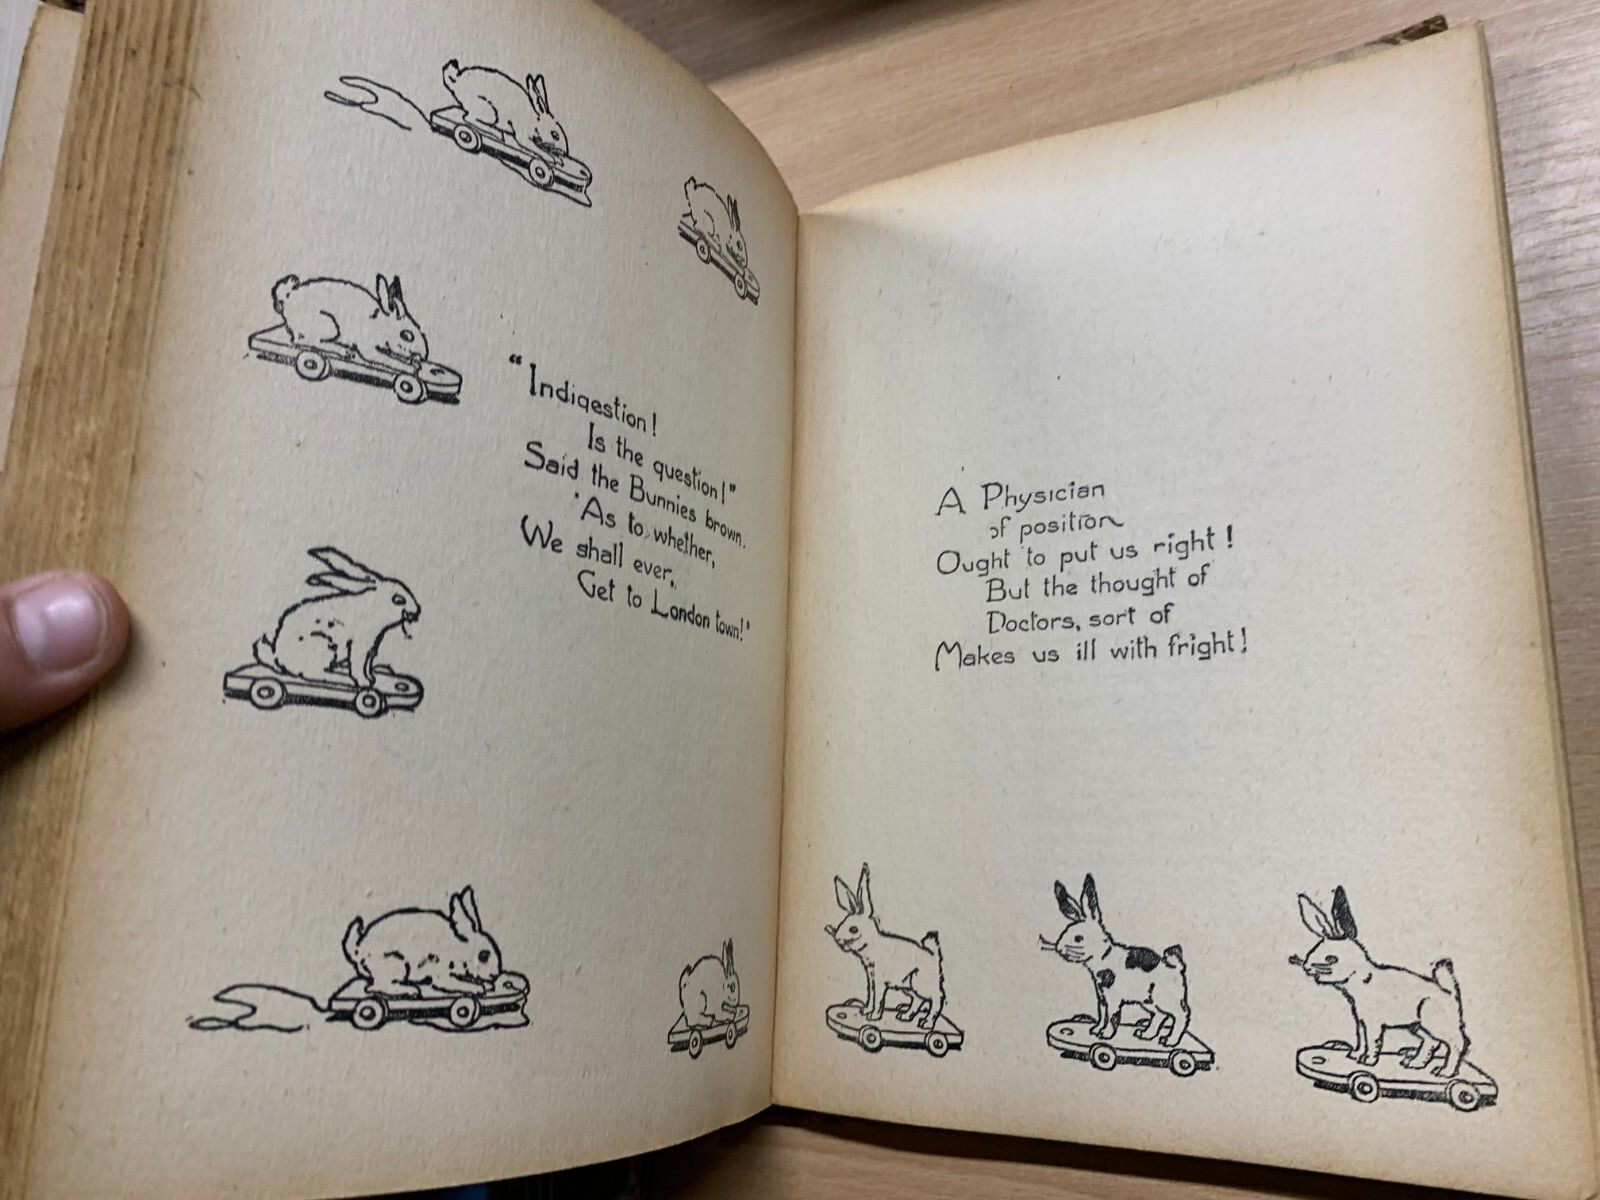 "Indigestion!
Is the question!"
Said the Bunnies brown.
"As to whether,
We shall ever,
Get to London town!"
A Physician
of position
Ought to put us right!
But the thought of
Doctors, sort of
Makes us ill with fright!